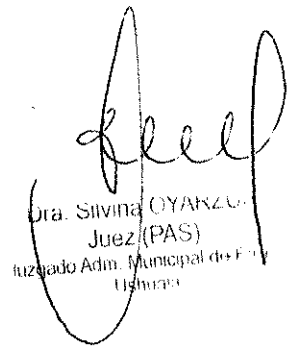 Dra. Silvina OYARZU
Juez (PAS)
Juzgado Adm. Municipal de
Ushuaia